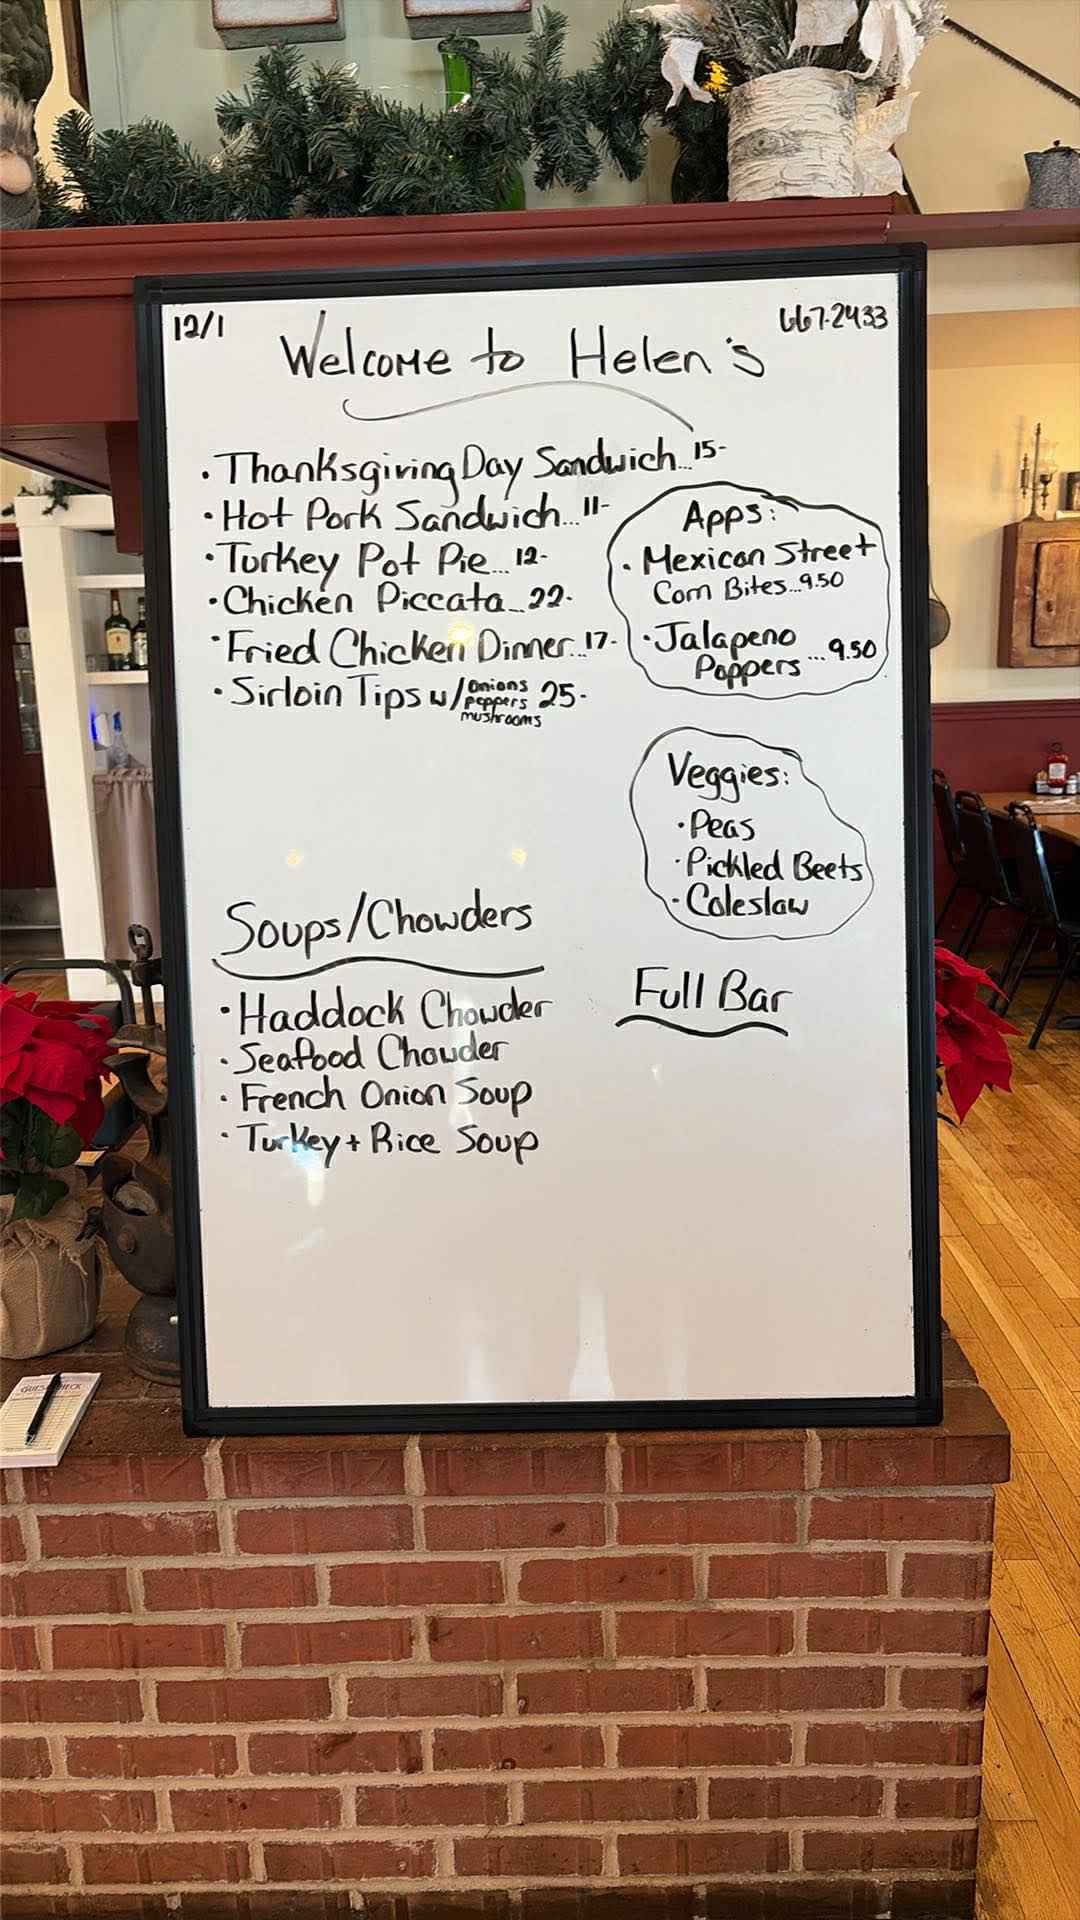 12/1
667-2433
Welcome to Helen's
· Thanksgiving Day Sandwich...15-
· Hot Pork Sandwich...11-
· Turkey Pot Pie...12-
· Chicken Piccata...22-
· Fried Chicken Dinner...17-
· Sirloin Tips w/ onions peppers mushrooms 25-
Apps:
· Mexican Street
Corn Bites...9.50
· Jalapeno
Poppers ...9.50
Veggies:
· Peas
· Pickled Beets
· Coleslaw
Soups/Chowders
· Haddock Chowder
· Seafood Chowder
· French Onion Soup
· Turkey + Rice Soup
Full Bar
GUEST CHECK